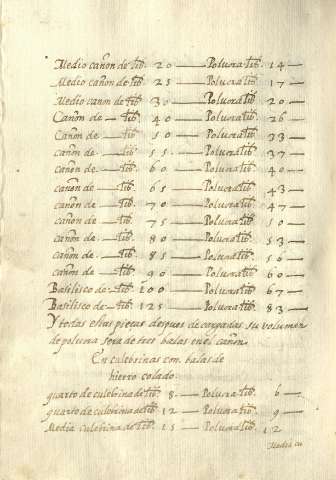 Medio cañon de lib. 20 — Poluora lib. 14 —
Medio cañon de lib. 25 — Poluora lib. 17 —
Medio cañon de lib. 30 — Poluora lib. 20 —
Cañon de — lib. 40 — Poluora lib. 26 —
Cañon de — lib. 50 — Poluora lib. 33 —
cañon de — lib. 55 — Poluora lib. 37 —
cañon de — lib. 60 — Poluora lib. 40 —
cañon de — lib. 65 — Poluora lib. 43 —
cañon de — lib. 70 — Poluora lib. 47 —
cañon de — lib. 75 — Poluora lib. 50 —
cañon de — lib. 80 — Poluora lib. 53 —
cañon de — lib. 85 — Poluora lib. 56 —
cañon de — lib. 90 — Poluora lib. 60 —
Basilisco de — lib. 100 — Poluora lib. 67 —
Basilisco de — lib. 125 — Poluora lib. 83 —
Y todas estas pieças despues de cargadas su volumen
de poluora sera de tres balas en el cañon.
En culebrinas con balas de
hierro colado.
quarto de culebrina de lib. 8 — Poluora lib. 6 —
quarto de culebrina de lib. 12 — Poluora lib. 9 —
Media culebrina de lib. 15 — Poluora lib. 12
Media cu